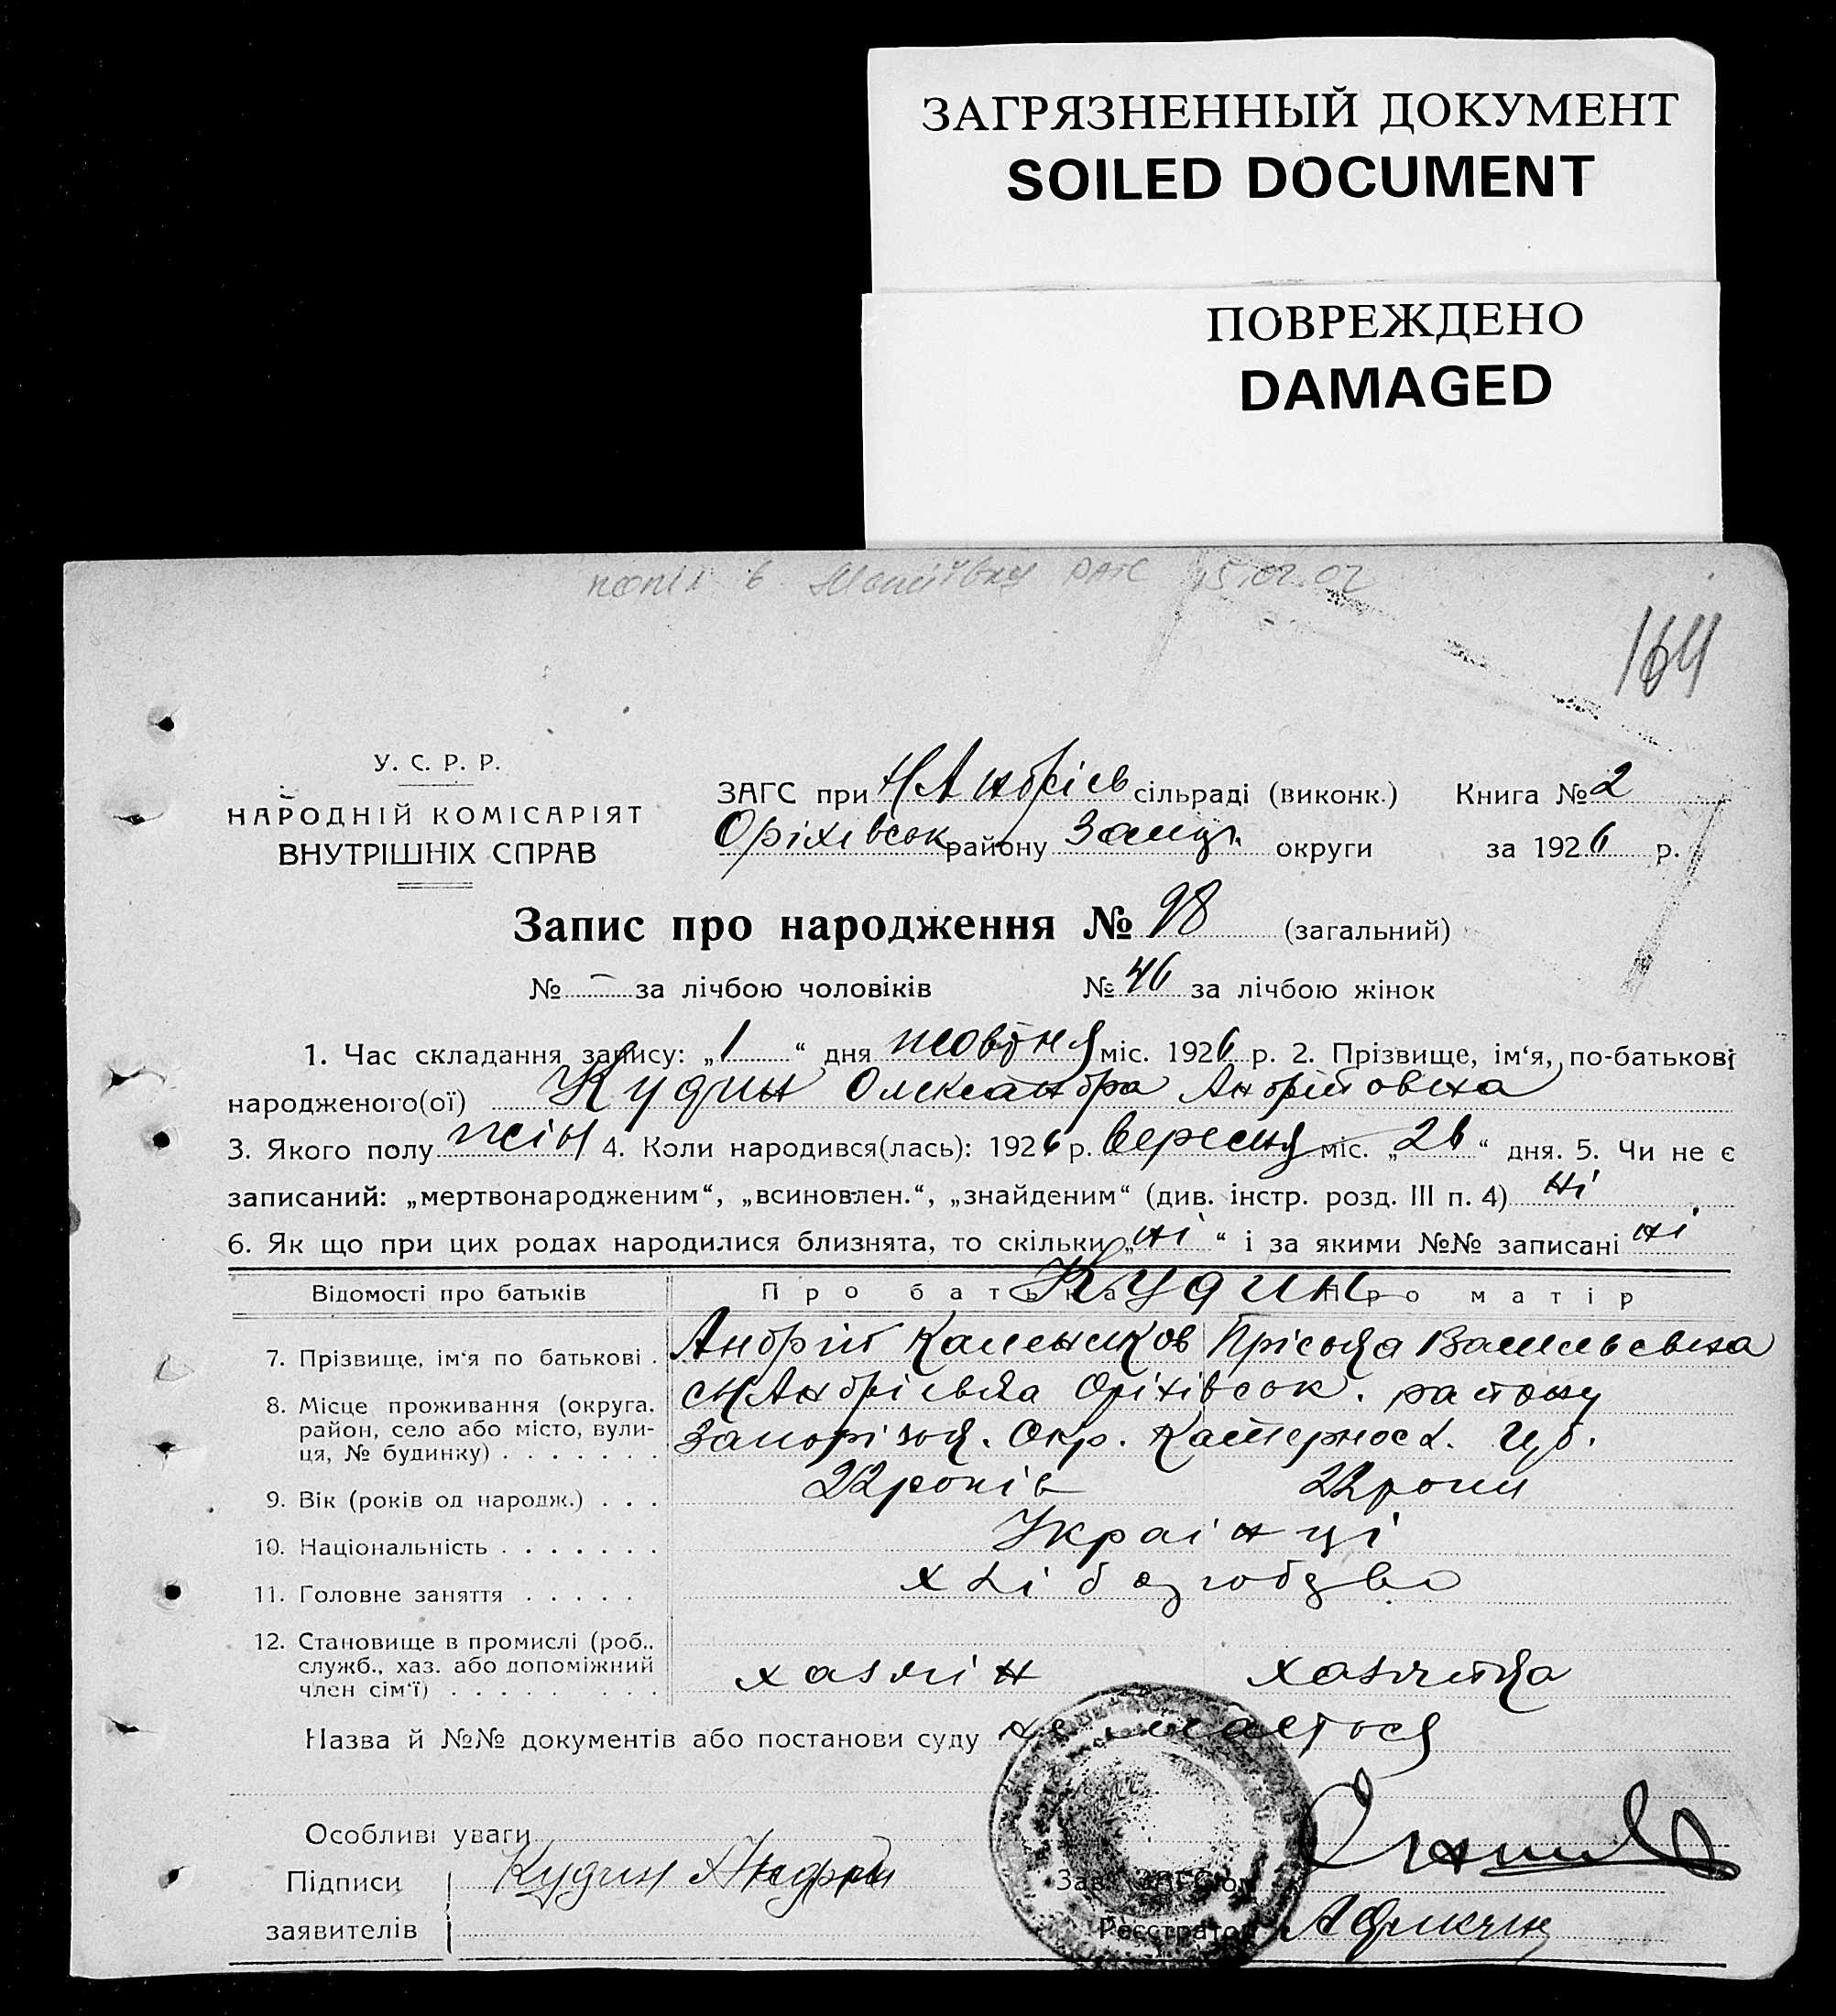 ЗАГРЯЗНЕННЫЙ ДОКУМЕНТ
SOILED DOCUMENT
ПОВРЕЖДЕНО
DAMAGED
копія в РАГС 15.02.02
164
У. С. Р. Р.
НАРОДНІЙ КОМІСАРІЯТ
ВНУТРІШНІХ СПРАВ
ЗАГС при Н Андрієв сільраді (виконк.) Книга № 2
Оріхівськ району Запор. округи за 1926 р.
Запис про народження № 98 (загальний)
№ – за лічбою чоловіків № 46 за лічбою жінок
1. Час складання запису: „1“ дня жовтня міс. 1926 р. 2. Прізвище, ім‘я, по-батькові
народженого(ої) Кудин Олександра Андрійовна
3. Якого полу жін 4. Коли народився(лась): 1926 р. вересня міс. „26“ дня. 5. Чи не є
записаний: „мертвонародженим“, „всиновлен.“, „знайденим“ (див. інстр. розд. III п. 4) ні
6. Як що при цих родах народилися близнята, то скільки „ні“ і за якими №№ записані ні
Відомості про батьків Про батька Кудин Про матір
7. Прізвище, ім‘я по батькові . Андрій Калеників Прісья Васильевна
8. Місце проживання (округа, район, село або місто, вулиця, № будинку) . . . . . . . с Н Андрієвка Оріхівськ. району
Запорізьк. Окр. Катериносл. Губ.
9. Вік (років од народж.) . . . 22 років 22 роки
10. Національність . . . . . . . Українці
11. Головне заняття . . . . . хліборобство
12. Становище в промислі (роб.,
служб., хаз. або допоміжний
член сім‘ї) . . . . . . . . . хазяїн хазяйка
Назва й №№ документів або постанови суду не мається
Особливі уваги
Підписи Кудин Андрей Зав. ЗАГС‘ом
заявителів Реєстратор